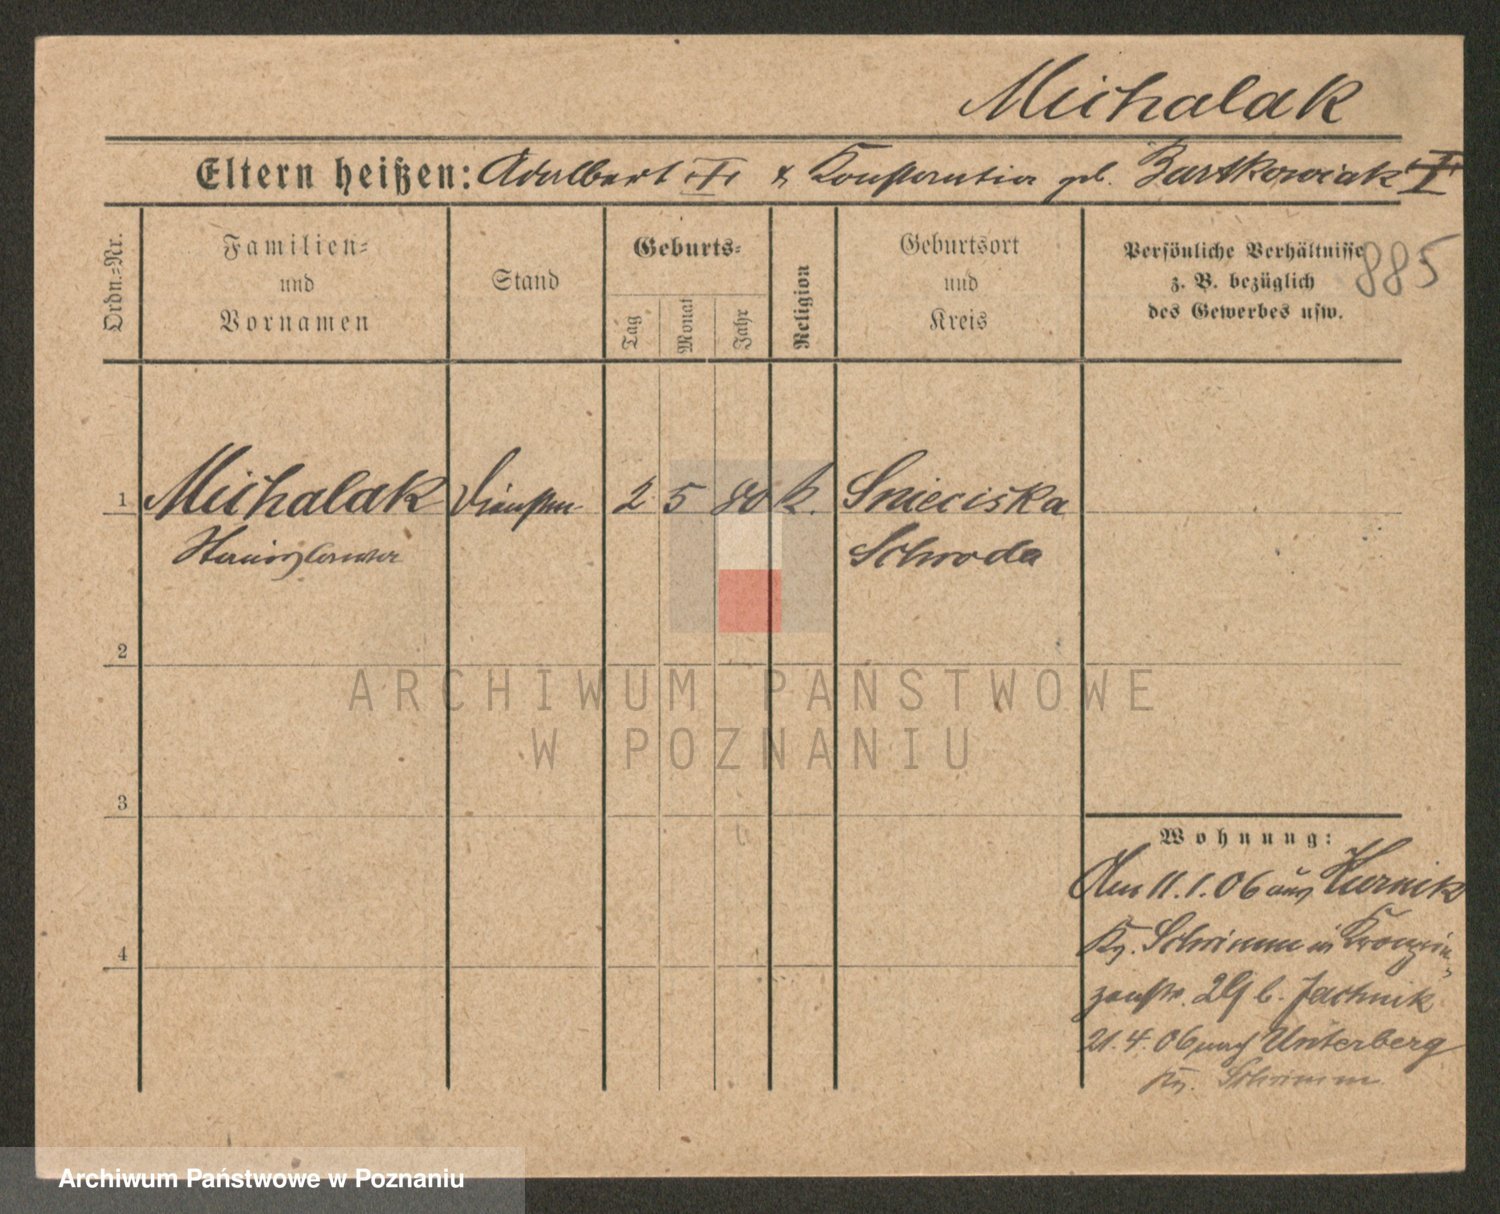 Michalak
Eltern heißen: Adalbert † & Konstantia geb. Bartkowiak †
Ordn.=Nr.
Familien=
und
Vornamen
Stand
Geburts=
Tag
Monat
Jahr
Religion
Geburtsort
und
Kreis
Persönliche Verhältnisse
z. B. bezüglich
des Gewerbes usw.
885
1 Michalak 2 5 80 k. Snieciska
Schroda
2
3
4
Wohnung:
Am 11.1.06 aus Kurnik
Kr. Schrimm in Kronprin-
zenstr. 29 b. Jachnik
21.4.06 nach Unterberg
Kr. Schrimm
ARCHIWUM PAŃSTWOWE
W POZNANIU
Archiwum Państwowe w Poznaniu